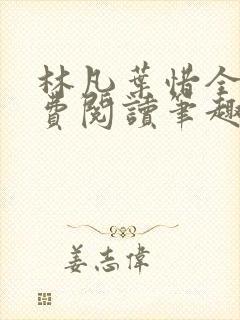 林凡葉惜全
費閱讀筆趣
姜志偉